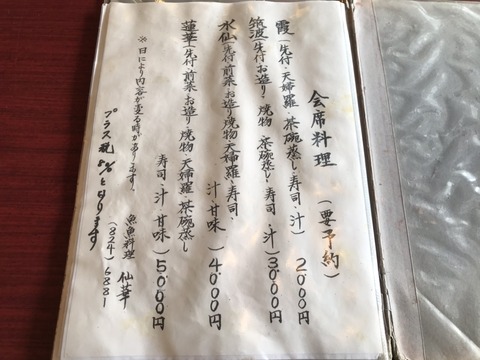 会席料理 (要予約)
霞 (先付・天婦羅・茶碗蒸し・寿司・汁) 2000円
筑波 (先付・お造り・焼物・茶碗蒸し・寿司・汁) 3000円
水仙 (先付・前菜・お造り・焼物・天婦羅・寿司・
汁・甘味) 4000円
蓮華 (先付・前菜・お造り・焼物・天婦羅・茶碗蒸し
寿司・汁・甘味) 5000円
※日により内容が変る時があります。
魚魚料理 仙華
プラス税5%となります
(824)6881